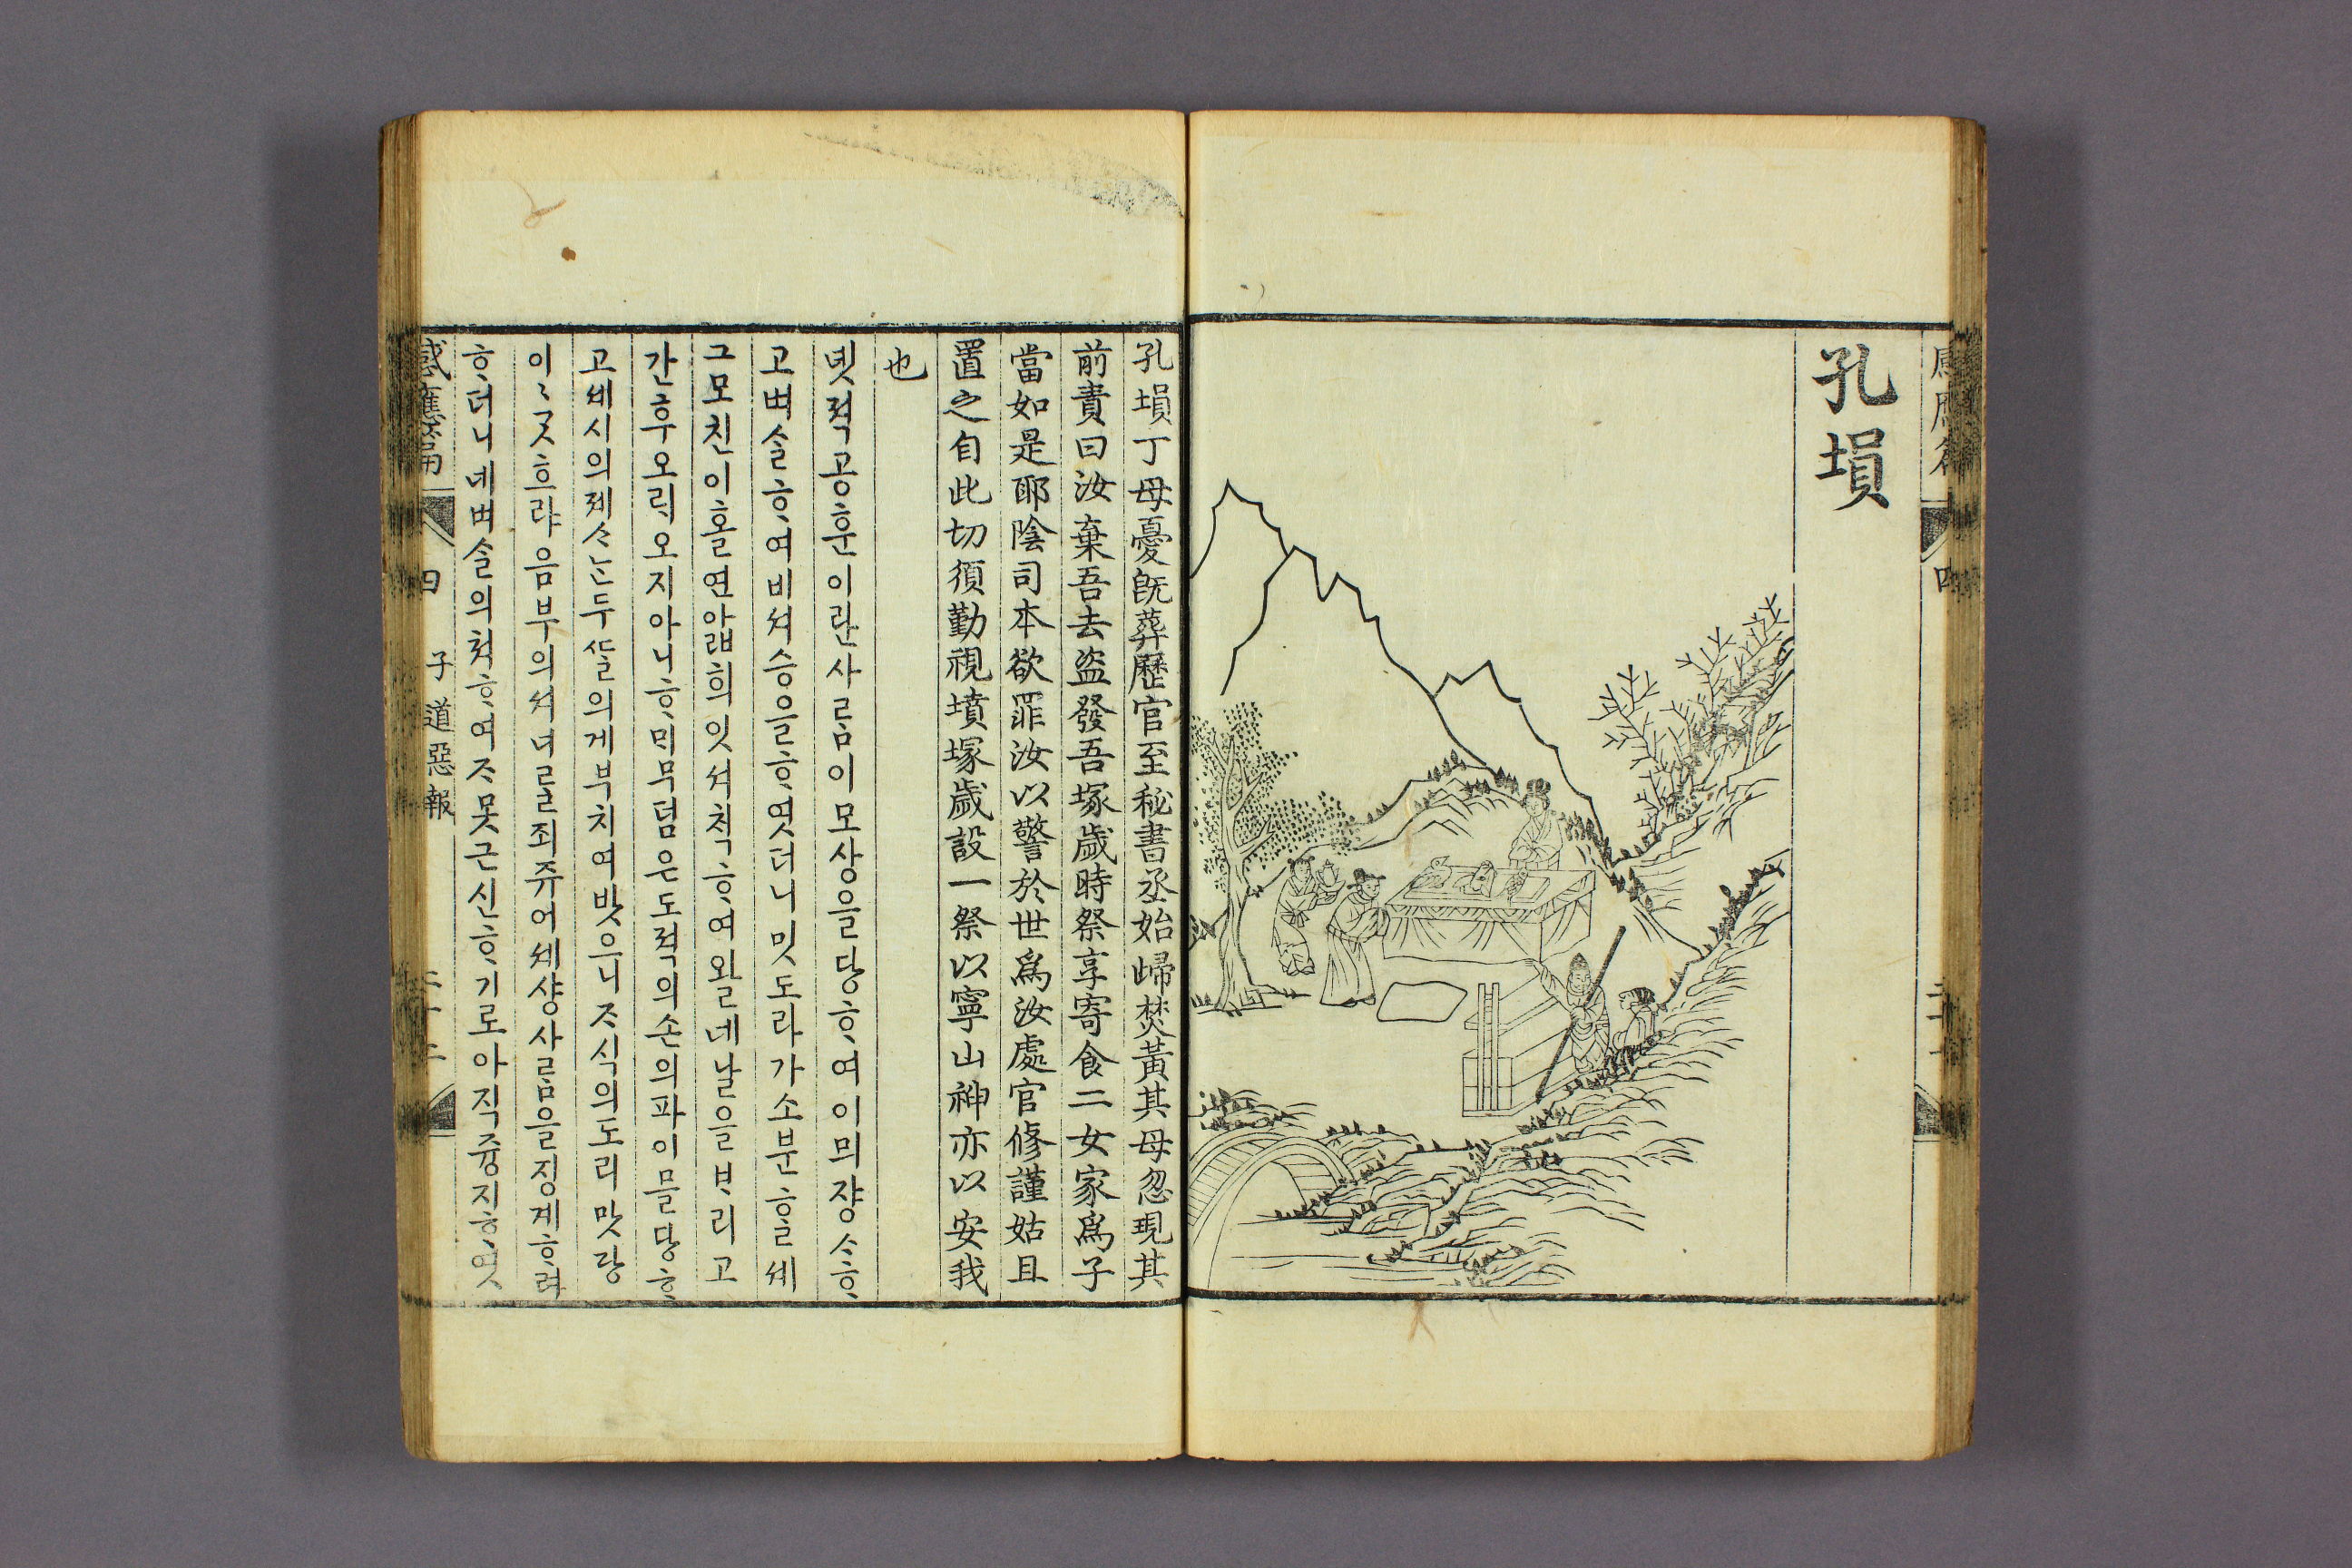 孔塤
孔塤丁母憂旣葬歷官至秘書丞始歸焚黃其母忽現其
前責曰汝棄吾去盜發吾塚歲時祭享寄食二女家爲子
當如是耶陰司本欲罪汝以警於世爲汝處官修謹姑且
置之自此切須勤視墳塚歲設一祭以寧山神亦以安我
也
녯젹공훈이란사ᄅᆞᆷ이모상을당ᄒᆞ여이믜쟝ᄉᆞᄒᆞ
고벼슬ᄒᆞ여비셔승을ᄒᆞ엿더니밋도라가소분ᄒᆞᆯ세
그모친이홀연알픠잇셔ᄎᆡᆨᄒᆞ여왈네날을ᄇᆞ리고
간후오ᄅᆡ오지아니ᄒᆞᄆᆡ무덤은도젹의손의파이믈당ᄒᆞ
고세시의졔ᄉᆞᄂᆞᆫ두ᄯᆞᆯ의게부치여밧으니ᄌᆞ식의도리맛랑
이〻ᄀᆞᆺᄒᆞ랴음부의셔너ᄅᆞᆯ죄쥬어세샹사ᄅᆞᆷ을징계ᄒᆞ려
ᄒᆞ더니네벼슬의쳐ᄒᆞ여ᄌᆞ못근신ᄒᆞ기로아직즁지ᄒᆞ엿
感應篇 四 子道惡報 二十二